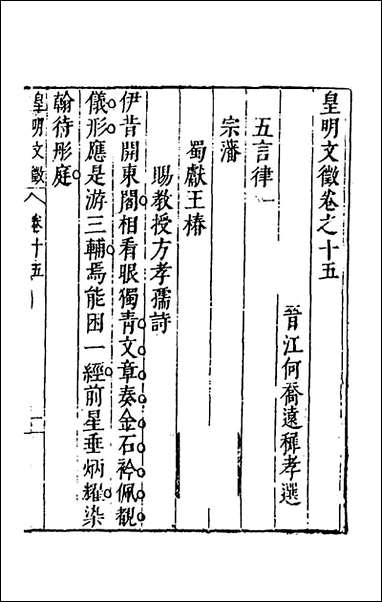 皇明文徵卷之十五
晉江何喬遠穉孝選
五言律一
宗藩
蜀獻王椿
賜教授方孝孺詩
伊昔開東閤相看眼獨青文章奏金石衿佩覩
儀形應是游三輔焉能困一經前星垂炳耀染
翰待彤庭
皇明文徵
卷十五
一